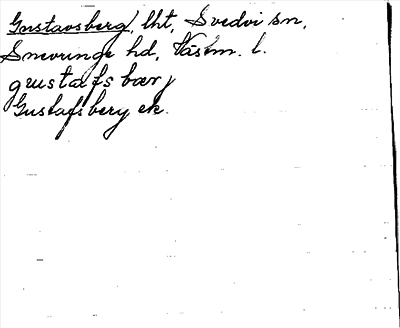 Gustavsberg, lht, Svedvi sn,
Snevringe hd, Västm. l.
gustafsbærj
Gustafsberg ek.